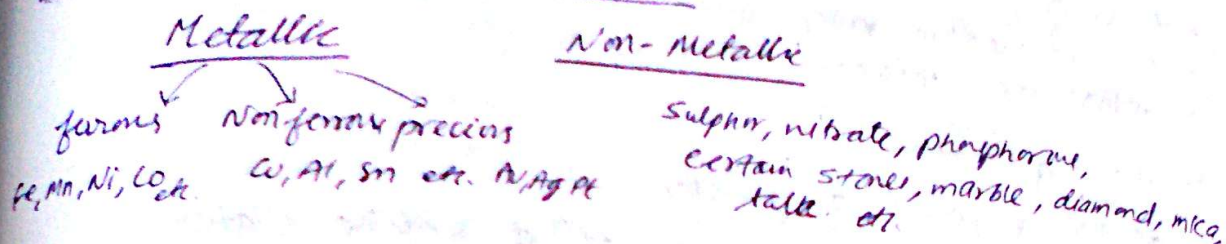 Metallic Non-Metallic
ferrous Non ferrous precious
Fe, Mn, Ni, Co etc. Cu, Al, Sn etc. Au, Ag Pt
Sulphur, nitrate, phosphorous,
certain stones, marble, diamond, mica,
talk etc